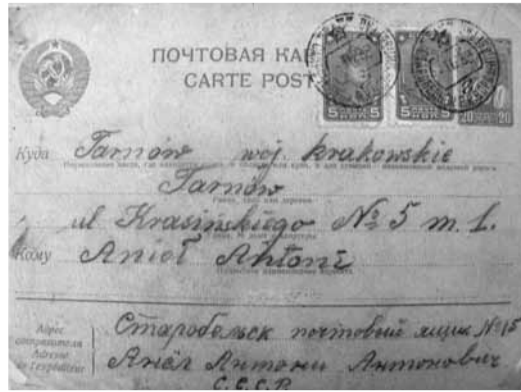 ПОЧТОВАЯ
CARTE POST
5 5
5 5
20 20
Куда Tarnów woj. krakowskie
Tarnów
ul Krasińskiego № 5 m. 1.
Кому Anioł Antoni
Адрес
отправителя
Adresse
de l'expéditeur
Старобельск почтовый ящик № 15
Анёл Антони Антонович
С.С.С.Р.